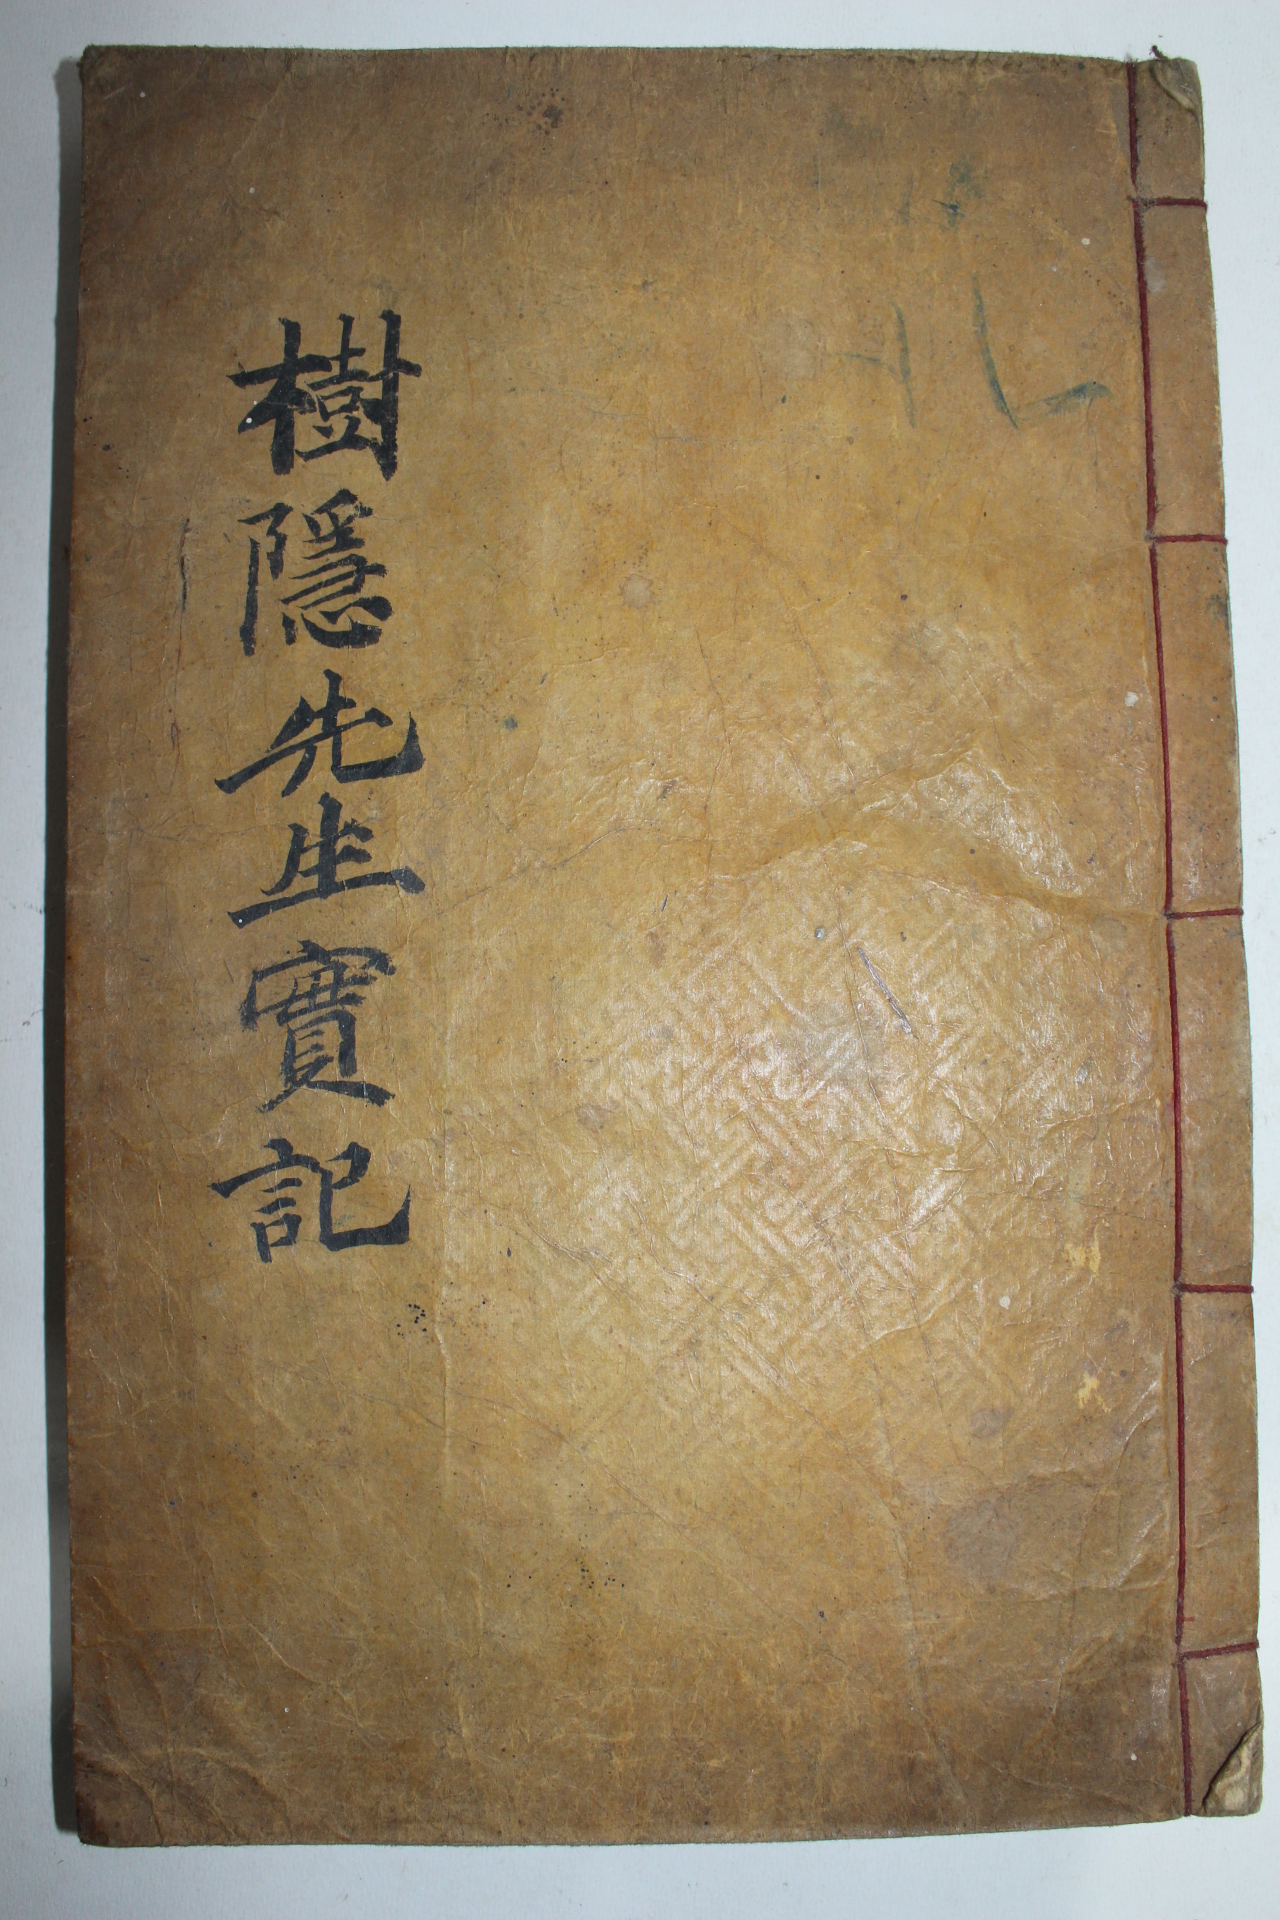 樹隱先生實記